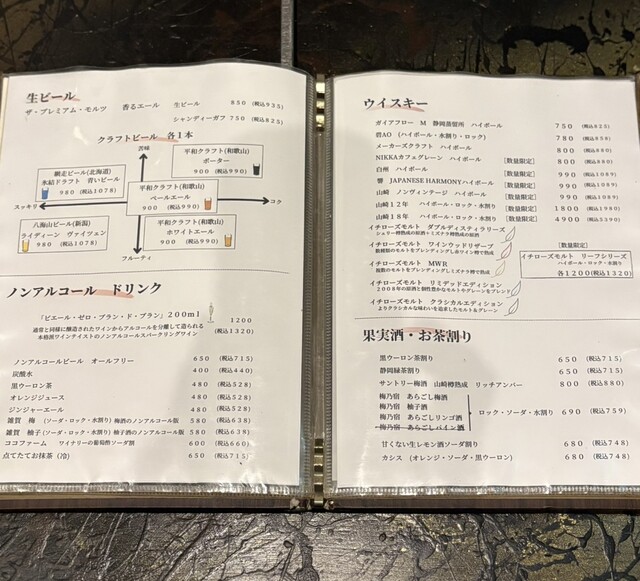 生ビール
ザ・プレミアム・モルツ 香るエール 生ビール 850 (税込935)
シャンディーガフ 750 (税込825)
クラフトビール 各1本
苦味
網走ビール(北海道)
氷結ドラフト 青いビール
980 (税込1078)
平和クラフト(和歌山)
ポーター
900 (税込990)
平和クラフト(和歌山)
ペールエール
900 (税込990)
スッキリ
コク
八海山ビール(新潟)
ライディーン ヴァイツェン
980 (税込1078)
平和クラフト(和歌山)
ホワイトエール
900 (税込990)
フルーティ
ノンアルコール ドリンク
「ピエール・ゼロ・ブラン・ド・ブラン」200ml 1200
(税込1320)
通常と同様に醸造されたワインからアルコールを分離して造られる
本格派ワインテイストのノンアルコールスパークリングワイン
ノンアルコールビール オールフリー 650 (税込715)
炭酸水 400 (税込440)
黒ウーロン茶 480 (税込528)
オレンジジュース 480 (税込528)
ジンジャーエール 480 (税込528)
雑賀 梅 (ソーダ・ロック・水割り) 梅酒のノンアルコール版 580 (税込638)
雑賀 柚子 (ソーダ・ロック・水割り) 柚子酒のノンアルコール版 580 (税込638)
ココファーム ワイナリーの葡萄酢ソーダ割 600 (税込660)
点てたてお抹茶 (冷) 650 (税込715)
ウイスキー
ガイアフロー M 静岡蒸留所 ハイボール 750 (税込825)
碧AO (ハイボール・水割り・ロック) 780 (税込858)
メーカーズクラフト ハイボール 800 (税込880)
NIKKAカフェグレーン ハイボール [数量限定] 800 (税込880)
白州 ハイボール [数量限定] 990 (税込1089)
響 JAPANESE HARMONYハイボール [数量限定] 990 (税込1089)
山崎 ノンヴィンテージ ハイボール [数量限定] 990 (税込1089)
山崎12年 ハイボール・ロック・水割り [数量限定] 1800 (税込1980)
山崎18年 ハイボール・ロック・水割り [数量限定] 4900 (税込5390)
イチローズモルト ダブルディスティラリーズ
シェリー樽熟成の原酒+ミズナラ樽熟成の原酒
イチローズモルト ワインウッドリザーブ
数種類のモルトをブレンディングし赤ワイン樽で熟成
イチローズモルト MWR
複数のモルトをブレンディングしミズナラ樽で熟成
イチローズモルト リミテッドエディション
2008年の原酒と個性豊かなモルトやグレーンをブレンド
イチローズモルト クラシカルエディション
よりクラシカルな味わいを追求したモルト&グレーン
[数量限定]
イチローズモルト リーフシリーズ
ハイボール・ロック・水割り
各1200(税込1320)
果実酒・お茶割り
黒ウーロン茶割り 650 (税込715)
静岡緑茶割り 650 (税込715)
サントリー梅酒 山崎樽熟成 リッチアンバー 800 (税込880)
梅乃宿 あらごし梅酒
梅乃宿 柚子酒
梅乃宿 あらごしリンゴ酒
梅乃宿 あらごしパイン酒
ロック・ソーダ・水割り 690 (税込759)
甘くない生レモン酒ソーダ割り 680 (税込748)
カシス (オレンジ・ソーダ・黒ウーロン) 680 (税込748)